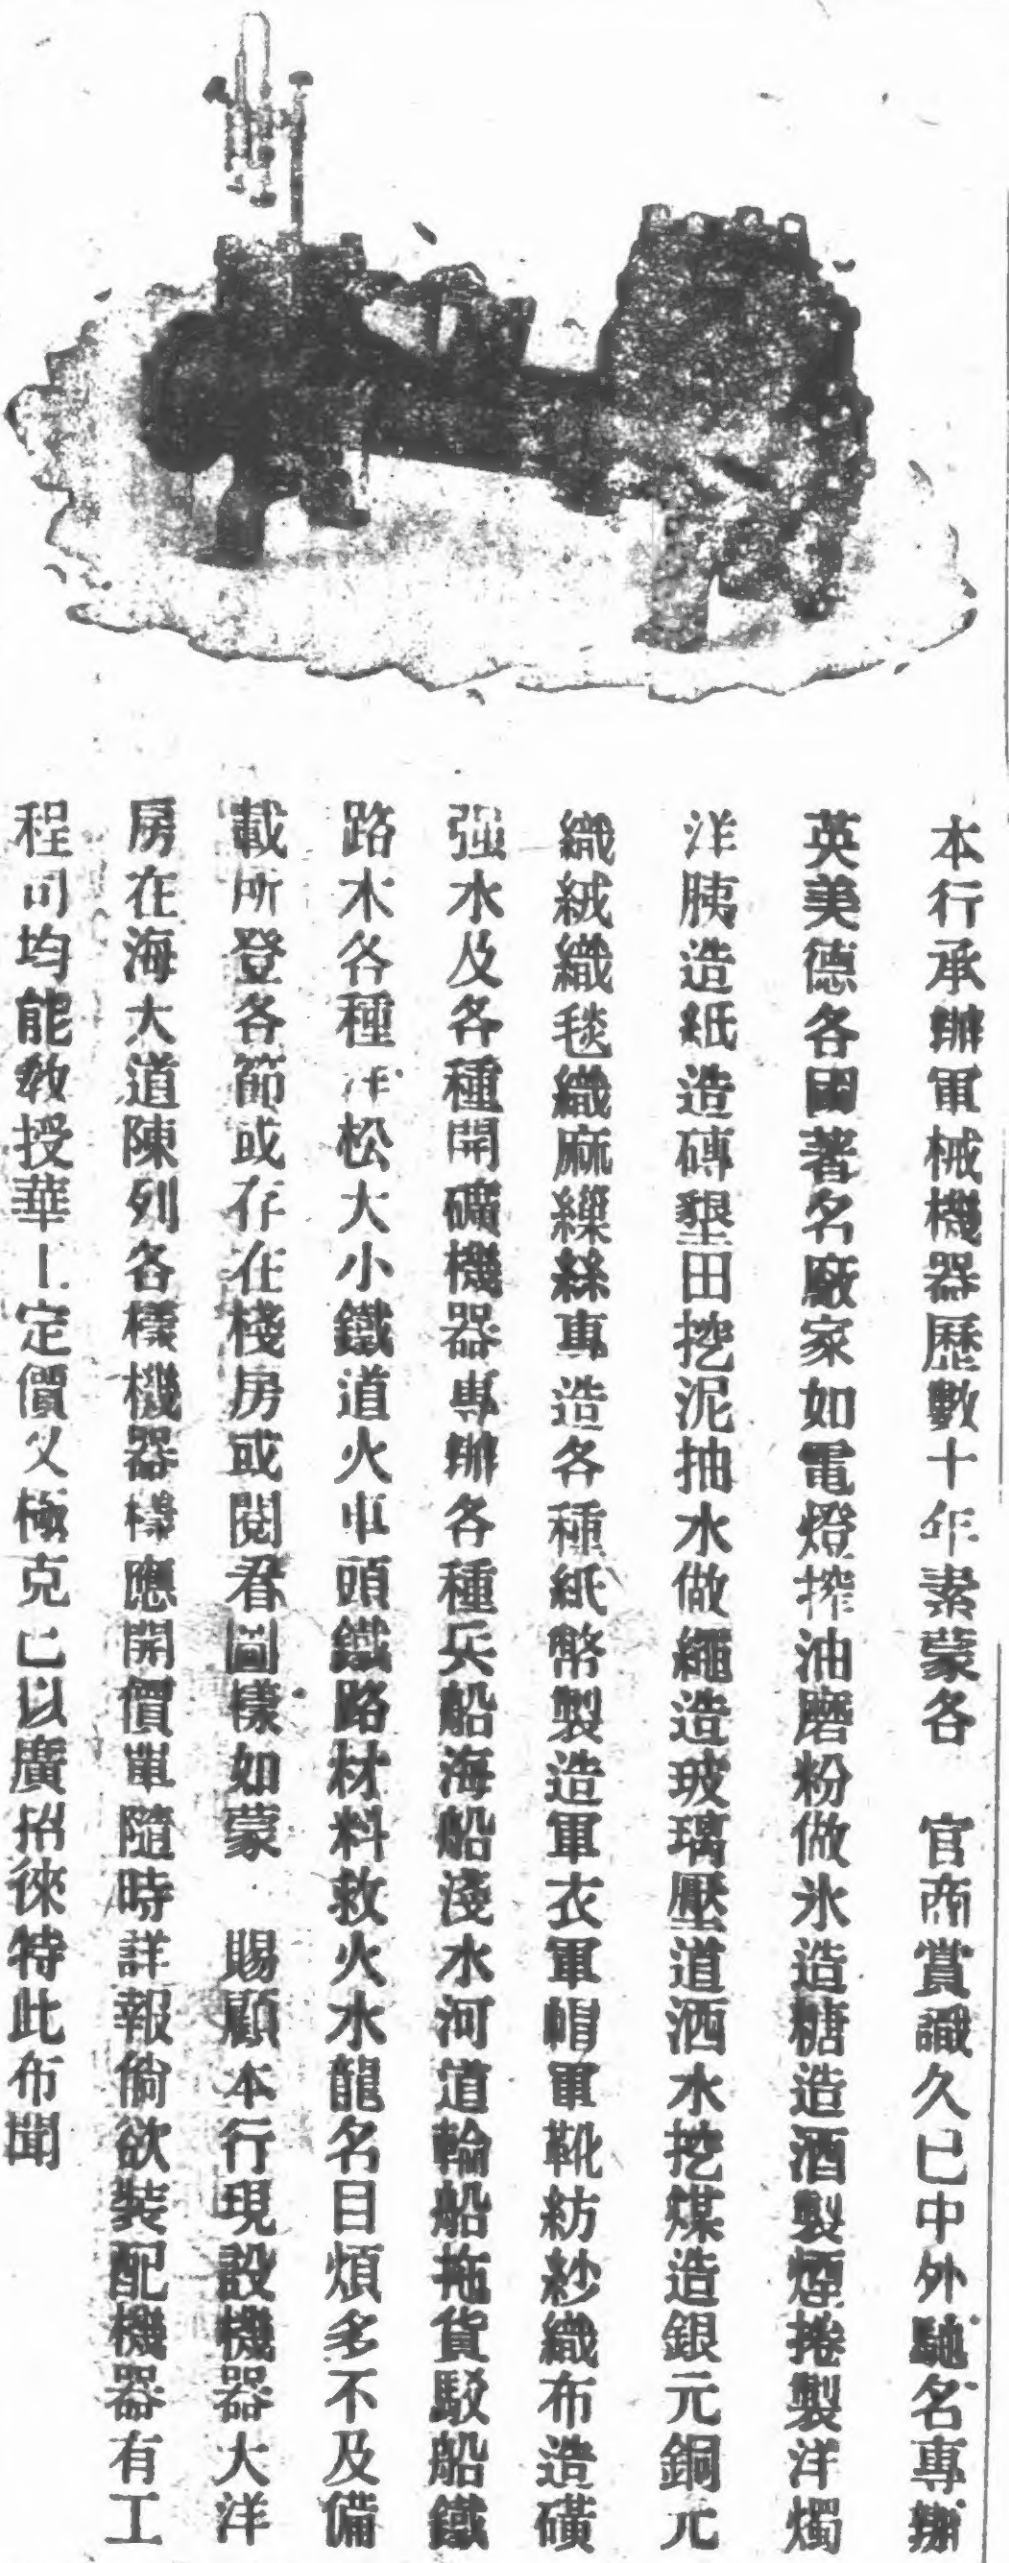 本行承辦軍械機器歷數十年素蒙各　官商賞識久已中外馳名專辦
英美德各國著名廠家如電燈搾油磨粉做氷造糖造酒製煙捲製洋燭
洋胰造紙造磚墾田挖泥抽水做繩造玻璃壓道洒水挖煤造銀元銅元
織絨織毯織麻繅絲專造各種紙幣製造軍衣軍帽軍靴紡紗織布造磺
强水及各種開礦機器專辦各種兵船海船淺水河道輪船拖貨駁船鐵
路木各種洋松大小鐵道火車頭鐵路材料救火水龍名目煩多不及備
載所登各節或存在棧房或閱看圖樣如蒙　賜顧本行現設機器大洋
房在海大道陳列各樣機器樣應開價單隨時詳報倘欲裝配機器有工
程司均能教授華工定價又極克己以廣招徠特此布聞